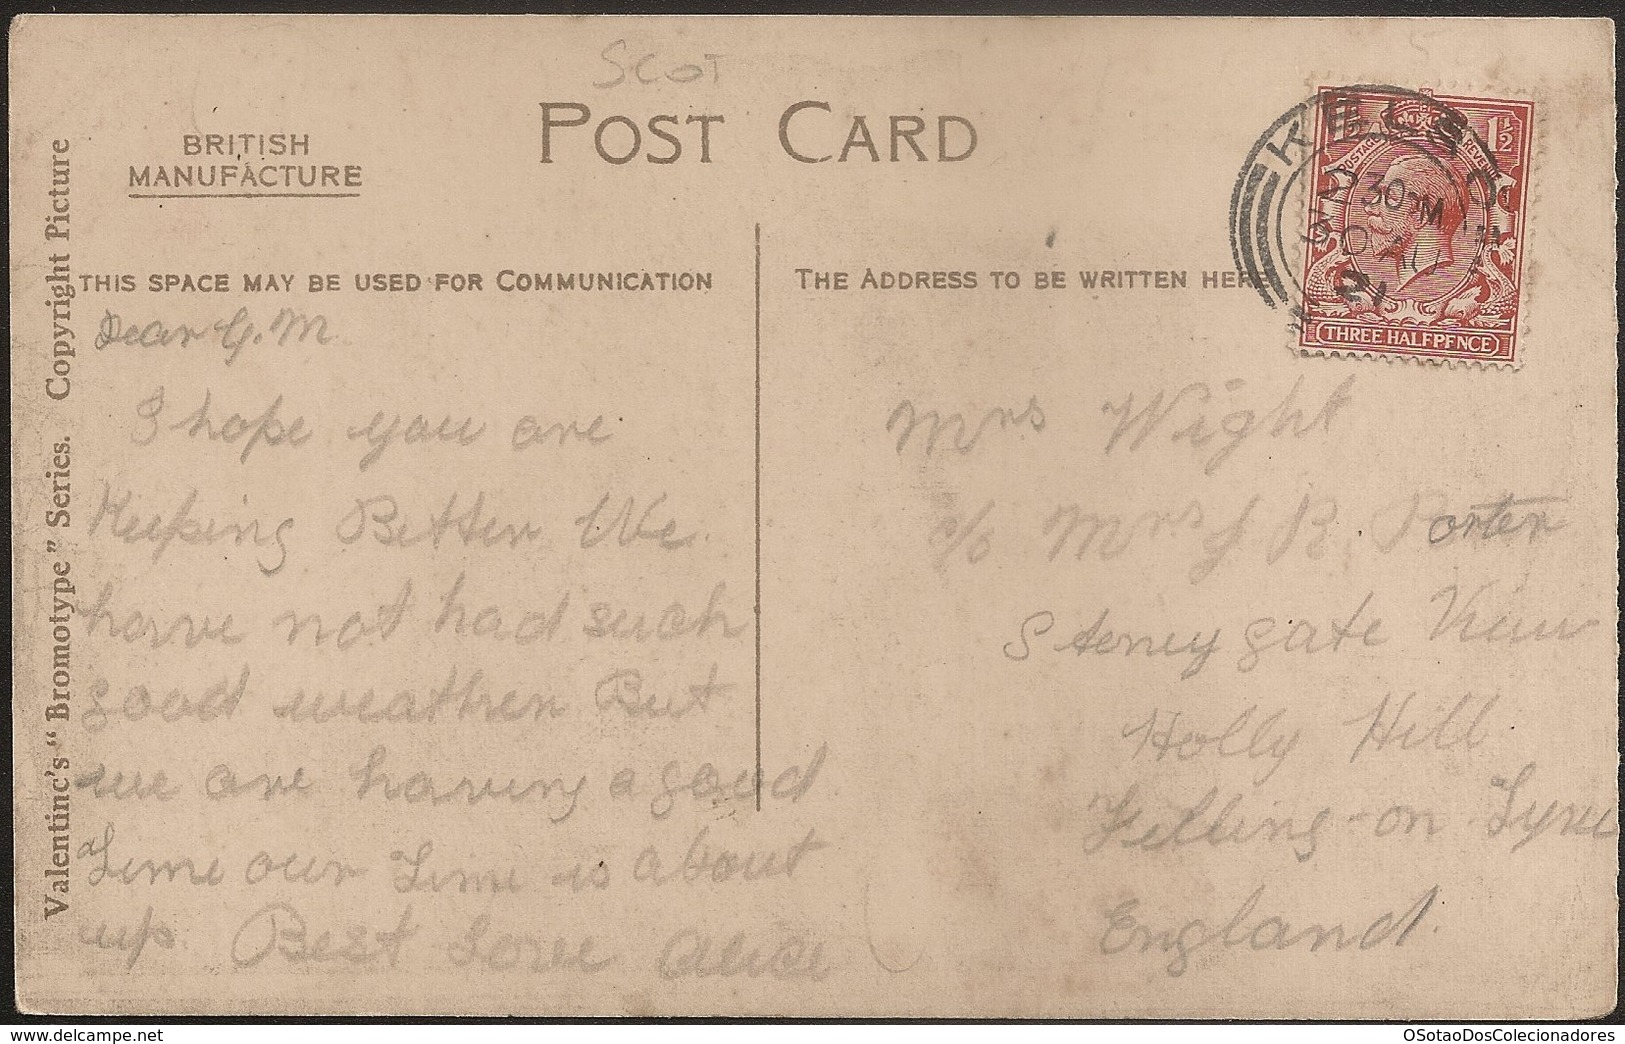 SCOT
POST CARD
BRITISH
MANUFACTURE
Valentine's "Bromotype" Series. Copyright Picture
THIS SPACE MAY BE USED FOR COMMUNICATION
THE ADDRESS TO BE WRITTEN HERE
KELSO
30 PM
AU
21
1½
POSTAGE REVENUE
THREE HALFPENCE
Dear G.M.
I hope you are
Keeping Better We
have not had such
good weather But
we are having a good
Time our Time is about
up. Best Love Alice
Mrs Wight
c/o Mrs J R. Porter
Stoneygate View
Holly Hill
Felling-on-Tyne
England.
OSotaoDosColecionadores
www.delcampe.net